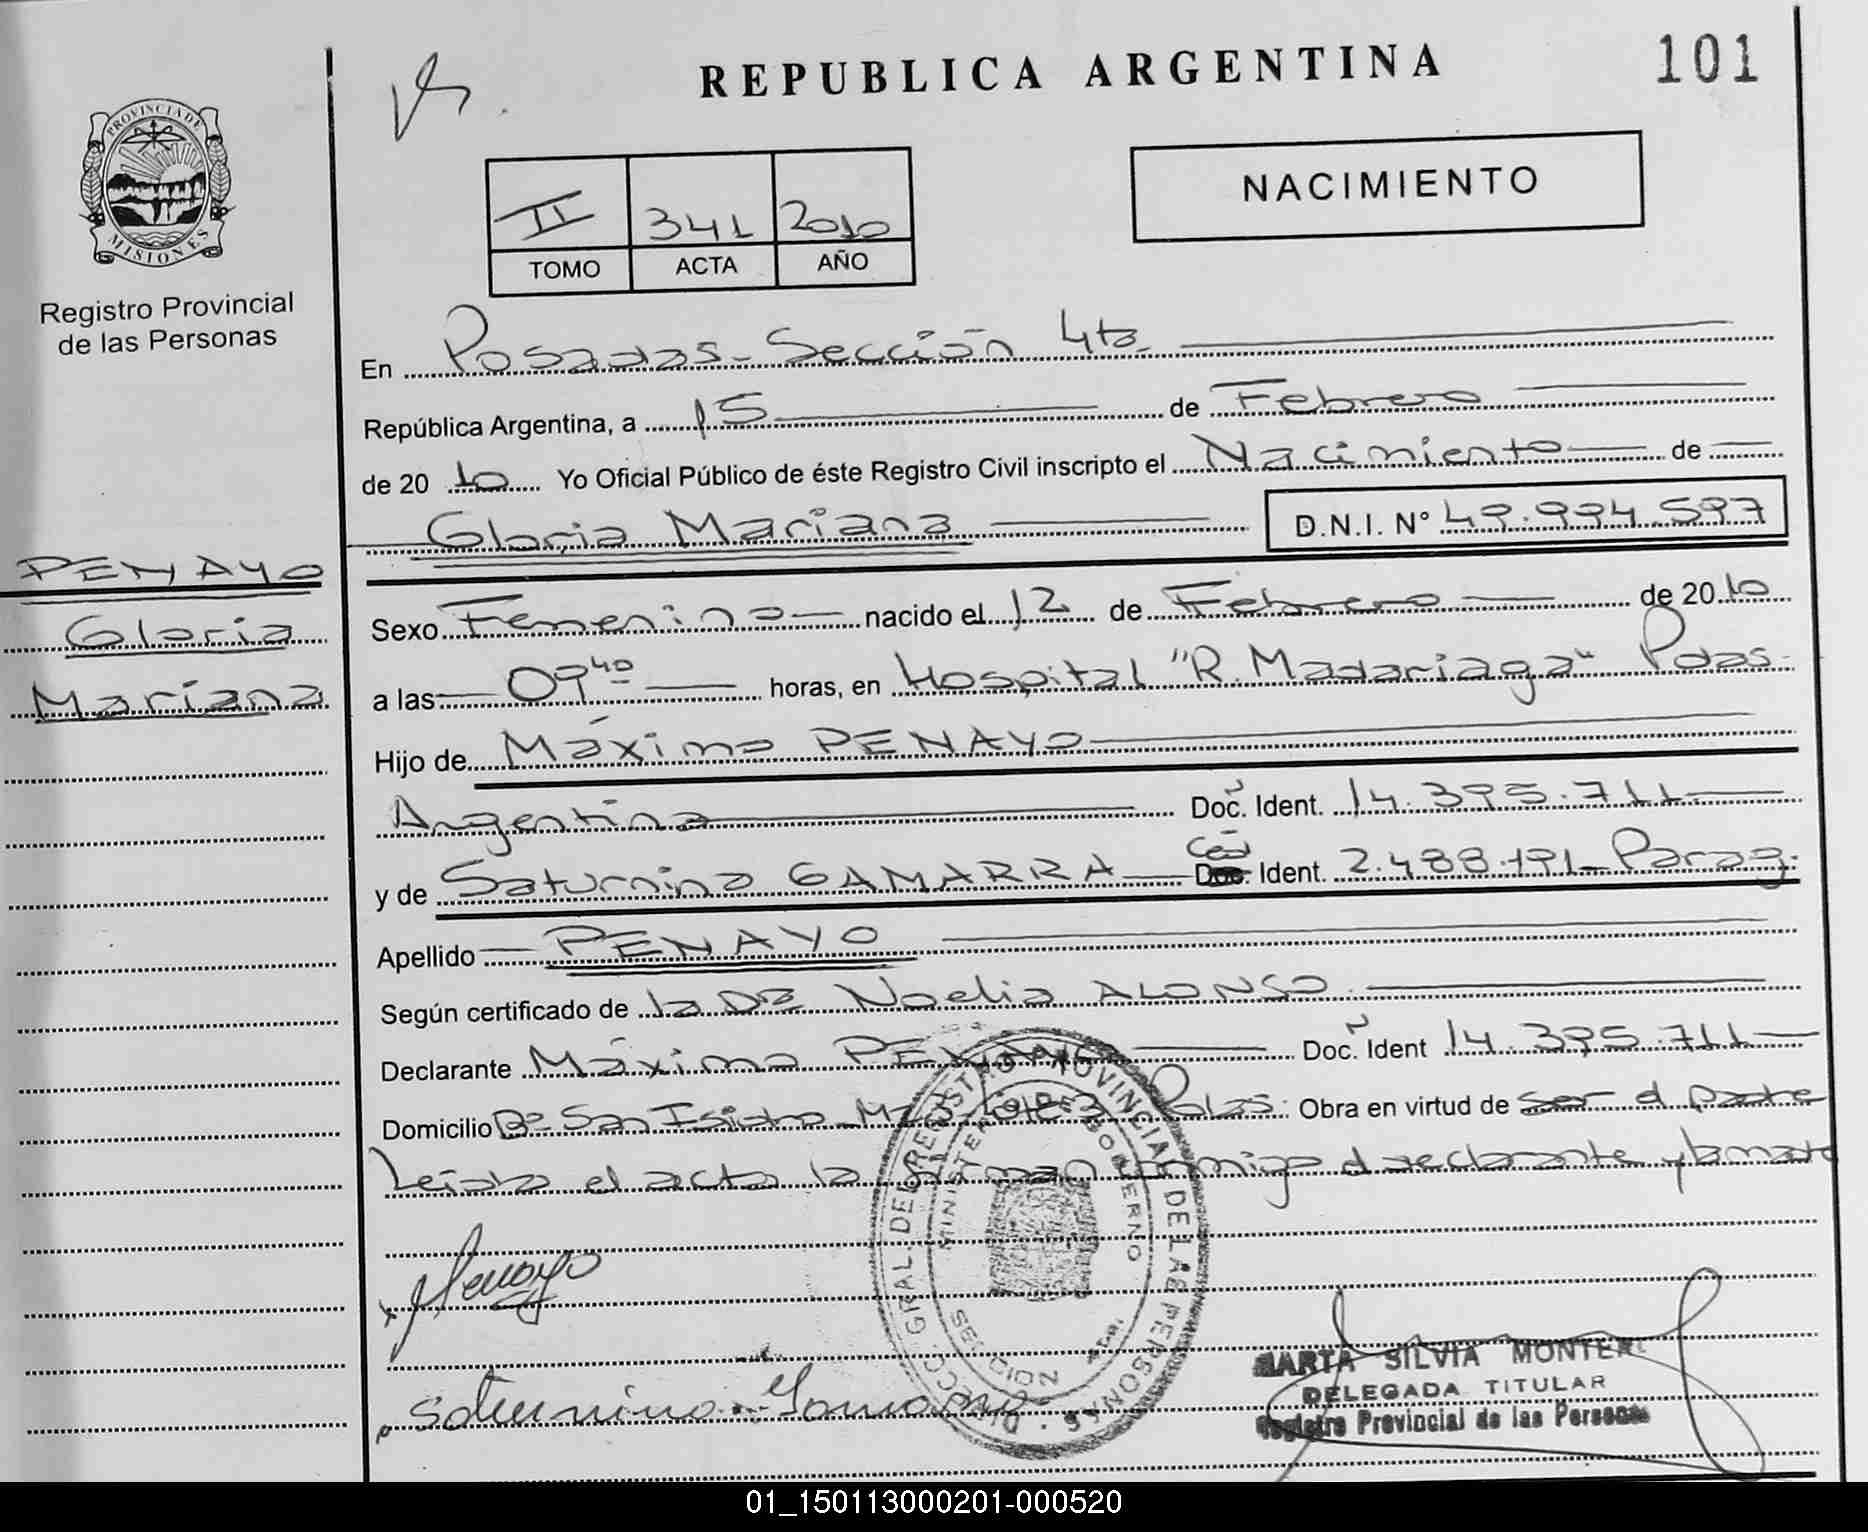 REPUBLICA ARGENTINA
101
PROVINCIA DE
MISIONES
Registro Provincial
de las Personas
II 341 2010
TOMO ACTA AÑO
NACIMIENTO
En Posadas - Sección 4ta.
República Argentina, a 15 de Febrero
de 2010 Yo Oficial Público de éste Registro Civil inscripto el Nacimiento de
Gloria Mariana D.N.I. N° 49.994.597
PENAYO
Gloria
Mariana
Sexo Femenino nacido el 12 de Febrero de 2010
a las 09 40 horas, en Hospital "R. Madariaga" Pdas.
Hijo de Máximo PENAYO
Argentino Doc. Ident. 14.395.711
y de Saturnina GAMARRA Ced Doc. Ident. 2.488.191 - Parag.
Apellido PENAYO
Según certificado de la DRA Noelia ALONSO.
Declarante Máximo PENAYO Doc. Ident 14.395.711
Domicilio Bº San Isidro Pdas. Obra en virtud de ser el padre
Leída el acta la firman conmigo el declarante y la madre
Penayo
Saturnina Gamarra
DIRECC. GRAL. DEL REGISTRO PROVINCIAL DE LAS PERSONAS
MINISTERIO DE GOBIERNO
SECCION 4TA.
MARTA SILVIA MONTERO
DELEGADA TITULAR
Registro Provincial de las Personas
01_150113000201-000520